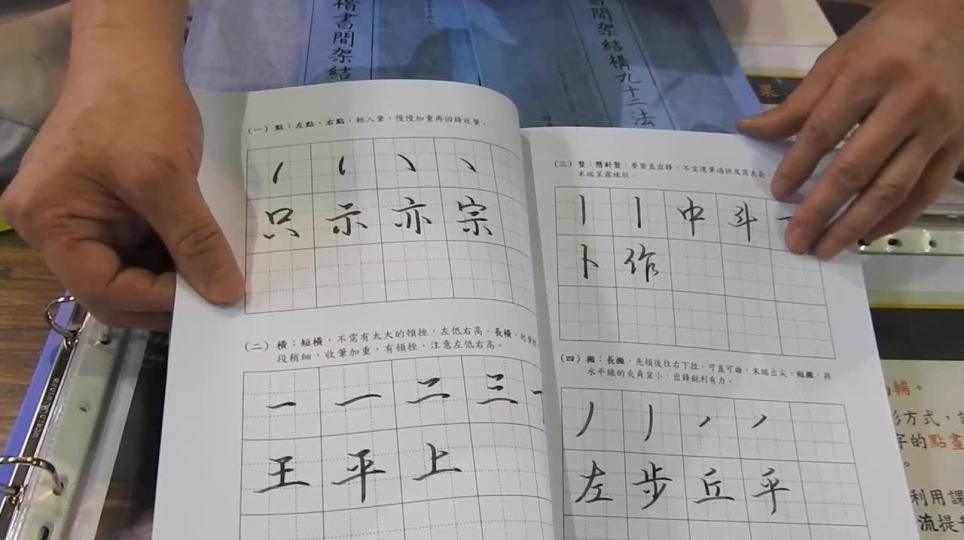 楷書間架結
間架結構九十二法
果
(一) 點：左點、右點，輕入筆，慢慢加重再回鋒收筆。
只 示 亦 宗
(二) 橫：短橫，不需有太大的頓挫，左低右高。長橫，起筆
段稍細，收筆加重，有頓挫，注意左低右高。
一 一 二 三
王 平 上
(三) 豎：懸針豎，要垂直出鋒，不宜運筆過快及寫太長。
末端呈露珠狀。
丨 丨 中 斗
卜 作
(四) 撇：長撇，先頓後往右下拉，可直可曲，末端出尖。短撇，與
水平線的夾角宜小，出鋒銳利有力。
丿 丿
左 步 丘 平
輔。
方式，
字的點畫
利用課
流提升